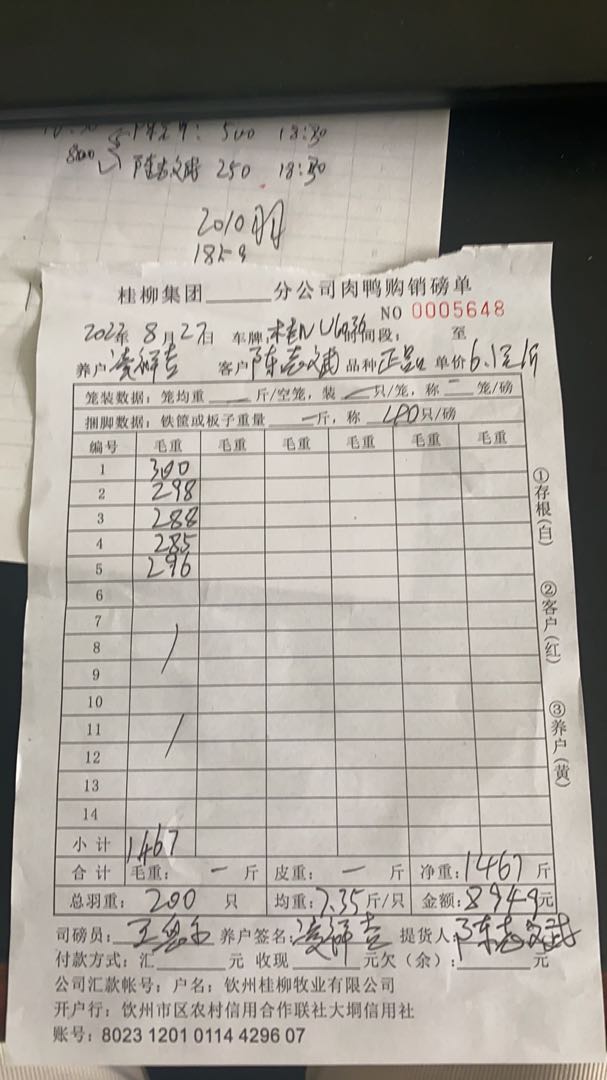 500 18:30
800 250 18:30
2010羽
1859
桂柳集团______分公司肉鸭购销磅单
NO 0005648
2022年 8月27日 车牌: 时间段: 至
养户 客户 陈志斌 品种 正品 单价 6.1元/斤
笼装数据: 笼均重 一 斤/空笼, 装 一 只/笼, 称 一 笼/磅
捆脚数据: 铁筐或板子重量 一 斤, 称 40只/磅
编号 毛重 毛重 毛重 毛重 毛重 毛重
1 300
2 298
3 288
4 285
5 296
6
7
8
9
10
11
12
13
14
小计 1467
合计 毛重: 一 斤 皮重: 一 斤 净重: 1467 斤
总羽重: 200 只 均重: 7.35斤/只 金额: 8949元
司磅员: 养户签名: 提货人: 陈志斌
付款方式: 汇______元 收现______元欠(余):______元
公司汇款帐号: 户名: 钦州桂柳牧业有限公司
开户行: 钦州市区农村信用合作联社大垌信用社
账号: 8023 1201 0114 4296 07
①存根(白)
②客户(红)
③养户(黄)